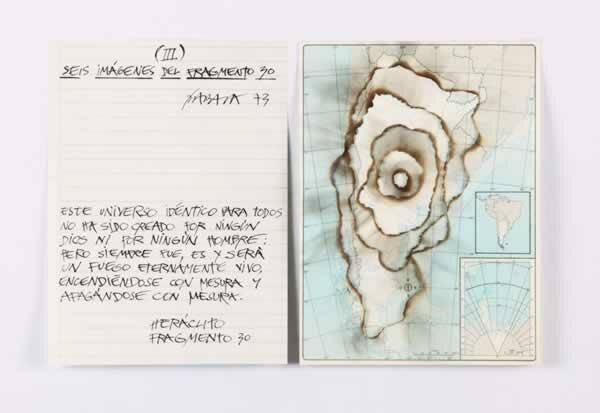 (III)
SEIS IMÁGENES DEL FRAGMENTO 30
ZABALA 73
ESTE UNIVERSO IDÉNTICO PARA TODOS
NO HA SIDO CREADO POR NINGÚN
DIOS NI POR NINGÚN HOMBRE:
PERO SIEMPRE FUE, ES Y SERÁ
UN FUEGO ETERNAMENTE VIVO,
ENCENDIÉNDOSE CON MESURA Y
APAGÁNDOSE CON MESURA.
HERÁCLITO
FRAGMENTO 30